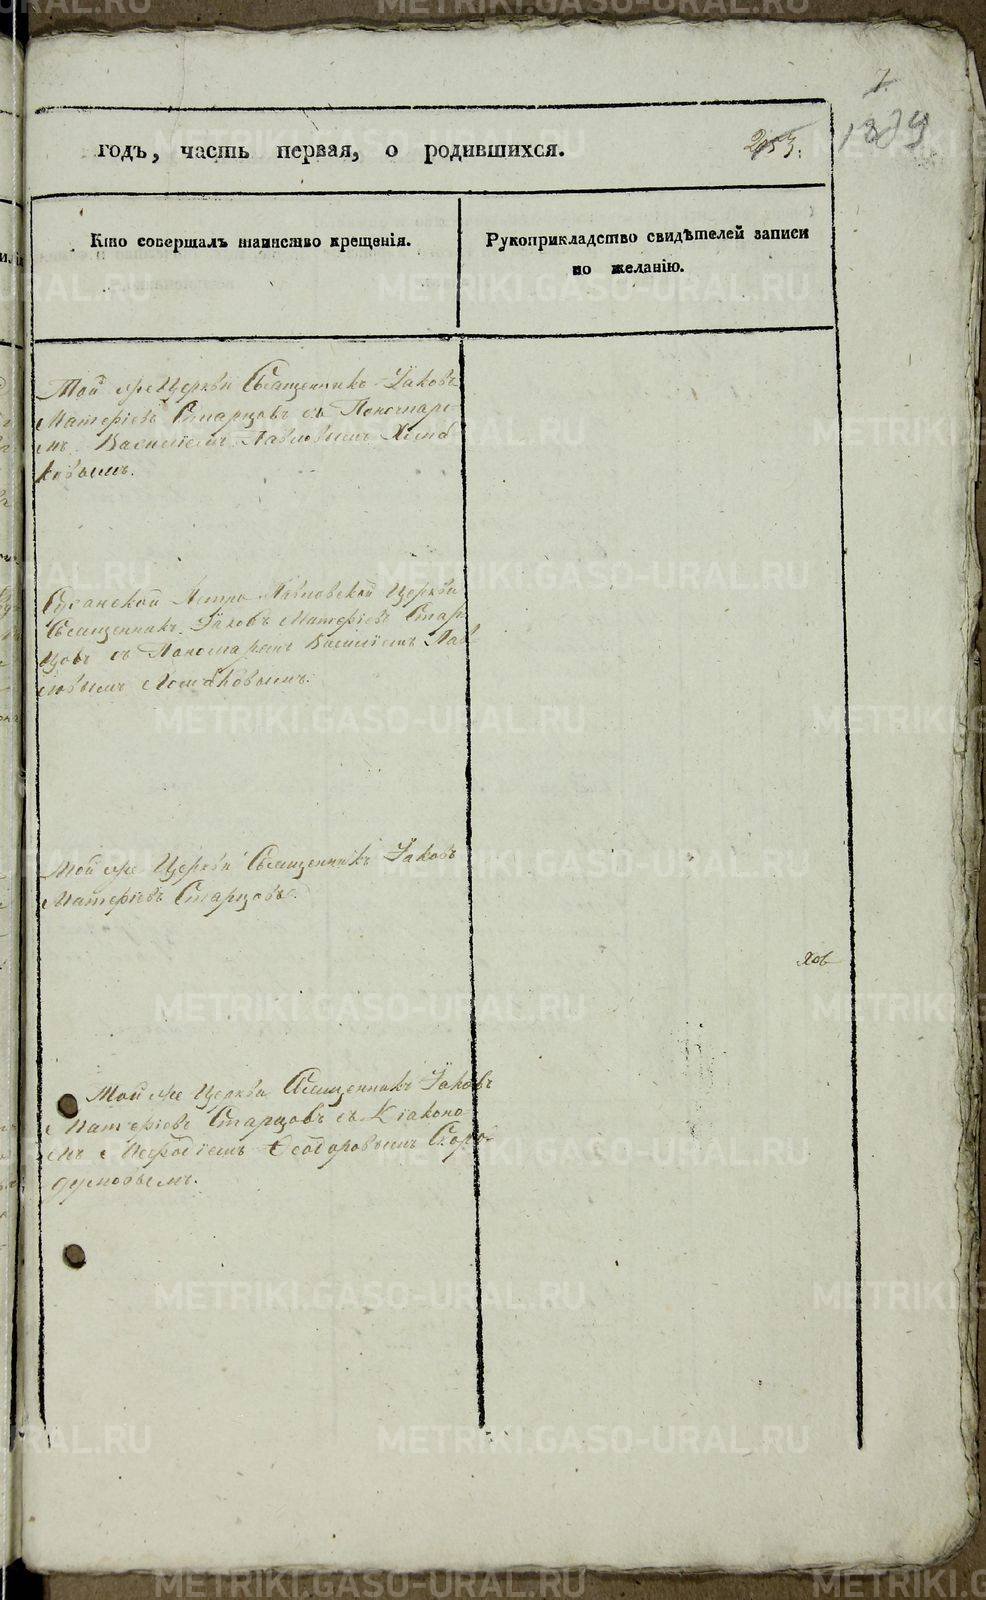 7.
годъ, часть первая, о родившихся.
253.
Кто совершалъ таинство крещенія.
Рукоприкладство свидѣтелей записи
по желанію.
Той же Церкви Священникъ Іаковъ
Матфіевъ Старцовъ съ Пономаре-
мъ Василіемъ Павловымъ Хлопа
ковымъ.
Сусанской Петро Павловской Церкви
Священникъ Іаковъ Матфіевъ Стар
цовъ съ Пономаремъ Василіемъ Пав
ловымъ
Той же Церкви Священникъ Іаковъ
Матфіевъ Старцовъ.
хов
Той же Церкви Священникъ Іаковъ
Матфіевъ Старцовъ съ Діаконо
мъ Мефодіемъ Ѳеодоровымъ Скоро-
думовымъ.
METRIKI.GASO-URAL.RU